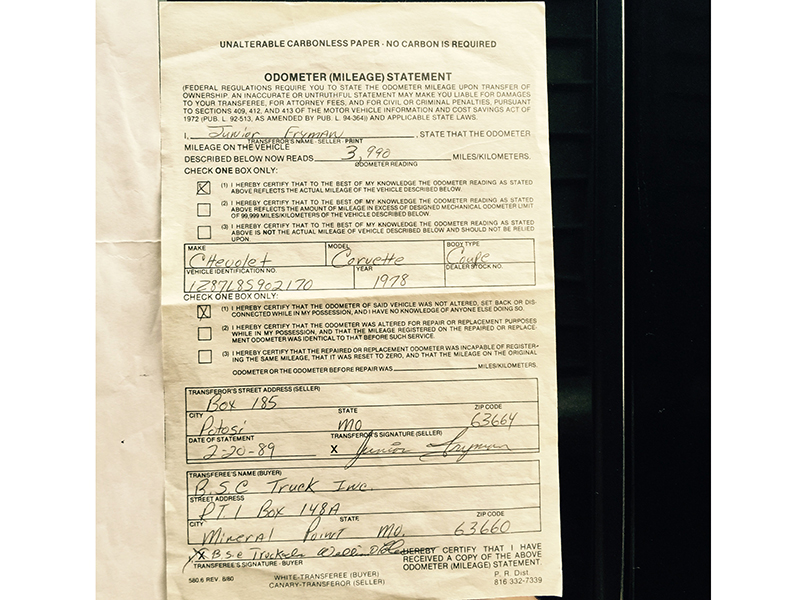 UNALTERABLE CARBONLESS PAPER - NO CARBON IS REQUIRED
ODOMETER (MILEAGE) STATEMENT
(FEDERAL REGULATIONS REQUIRE YOU TO STATE THE ODOMETER MILEAGE UPON TRANSFER OF
OWNERSHIP. AN INACCURATE OR UNTRUTHFUL STATEMENT MAY MAKE YOU LIABLE FOR DAMAGES
TO YOUR TRANSFEREE, FOR ATTORNEY FEES, AND FOR CIVIL OR CRIMINAL PENALTIES, PURSUANT
TO SECTIONS 409, 412, AND 413 OF THE MOTOR VEHICLE INFORMATION AND COST SAVINGS ACT OF
1972 (PUB. L. 92-513, AS AMENDED BY PUB. L. 94-364) AND APPLICABLE STATE LAWS.
I, Junior Fryman, STATE THAT THE ODOMETER
TRANSFEROR'S NAME - SELLER - PRINT
MILEAGE ON THE VEHICLE
DESCRIBED BELOW NOW READS 3,990 MILES/KILOMETERS.
ODOMETER READING
CHECK ONE BOX ONLY:
X (1) I HEREBY CERTIFY THAT TO THE BEST OF MY KNOWLEDGE THE ODOMETER READING AS STATED
ABOVE REFLECTS THE ACTUAL MILEAGE OF THE VEHICLE DESCRIBED BELOW.
(2) I HEREBY CERTIFY THAT TO THE BEST OF MY KNOWLEDGE THE ODOMETER READING AS STATED
ABOVE REFLECTS THE AMOUNT OF MILEAGE IN EXCESS OF DESIGNED MECHANICAL ODOMETER LIMIT
OF 99,999 MILES/KILOMETERS OF THE VEHICLE DESCRIBED BELOW.
(3) I HEREBY CERTIFY THAT TO THE BEST OF MY KNOWLEDGE THE ODOMETER READING AS STATED
ABOVE IS NOT THE ACTUAL MILEAGE OF VEHICLE DESCRIBED BELOW AND SHOULD NOT BE RELIED
UPON
MAKE MODEL BODY TYPE
CHevolet Corvette Coupe
VEHICLE IDENTIFICATION NO. YEAR DEALER STOCK NO.
1Z87L8S902170 1978
CHECK ONE BOX ONLY:
X (1) I HEREBY CERTIFY THAT THE ODOMETER OF SAID VEHICLE WAS NOT ALTERED, SET BACK OR DIS-
CONNECTED WHILE IN MY POSSESSION, AND I HAVE NO KNOWLEDGE OF ANYONE ELSE DOING SO.
(2) I HEREBY CERTIFY THAT THE ODOMETER WAS ALTERED FOR REPAIR OR REPLACEMENT PURPOSES
WHILE IN MY POSSESSION, AND THAT THE MILEAGE REGISTERED ON THE REPAIRED OR REPLACE-
MENT ODOMETER WAS IDENTICAL TO THAT BEFORE SUCH SERVICE.
(3) I HEREBY CERTIFY THAT THE REPAIRED OR REPLACEMENT ODOMETER WAS INCAPABLE OF REGISTER-
ING THE SAME MILEAGE, THAT IT WAS RESET TO ZERO, AND THAT THE MILEAGE ON THE ORIGINAL
ODOMETER OR THE ODOMETER BEFORE REPAIR WAS MILES/KILOMETERS.
TRANSFEROR'S STREET ADDRESS (SELLER)
Box 185
CITY STATE ZIP CODE
Potosi MO 63664
DATE OF STATEMENT TRANSFEROR'S SIGNATURE (SELLER)
2-20-89 X Junior Fryman
TRANSFEREE'S NAME (BUYER)
B.S.C Truck Inc.
STREET ADDRESS
RT.1 Box 148A
CITY STATE ZIP CODE
Mineral Point MO. 63660
X B.S.C HEREBY CERTIFY THAT I HAVE
TRANSFEREE'S SIGNATURE - BUYER RECEIVED A COPY OF THE ABOVE
ODOMETER (MILEAGE) STATEMENT.
580.6 REV. 8/80 WHITE-TRANSFEREE (BUYER) P. R. Dist.
CANARY-TRANSFEROR (SELLER) 816 332-7339